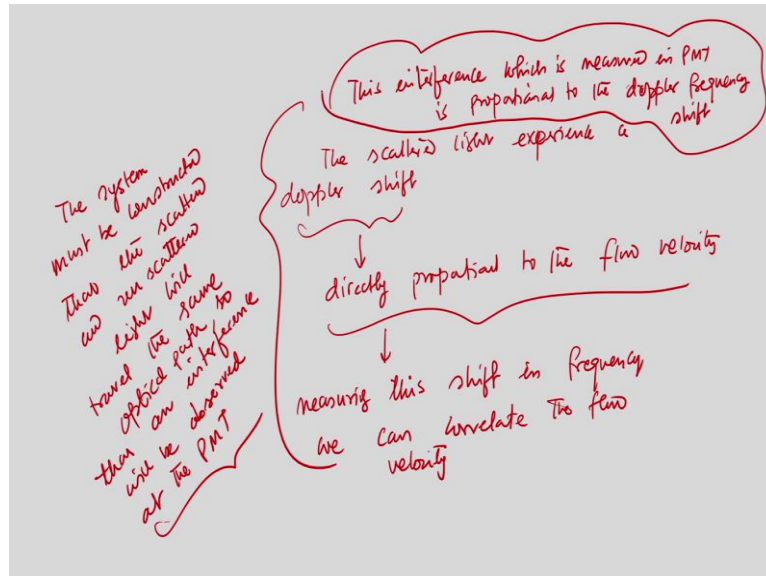 This interference which is measured in PMT
is proportional to the doppler frequency
shift
The scattered light experience a
doppler shift
directly proportional to the flow velocity
measuring this shift in frequency
we can correlate the flow
velocity
The system
must be constructed
that the scattered
and unscattered
light will
travel the same
optical path so
that an interference
will be observed
at the PMT